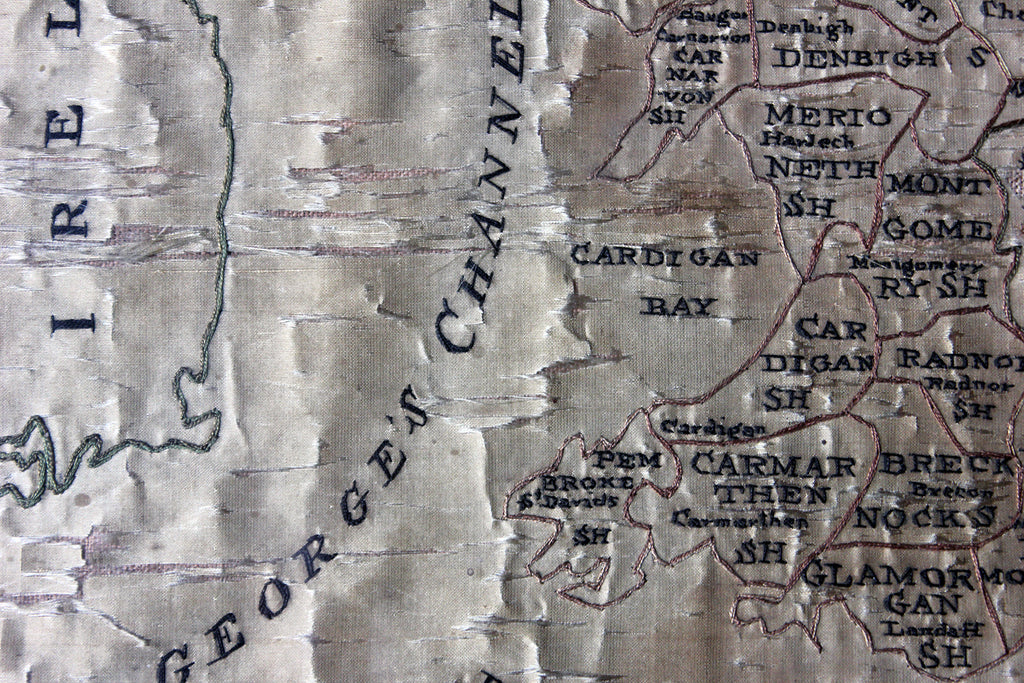 IREL
GEORGE'S CHANNEL
CARDIGAN
BAY
Bangor
Carnarvon
CAR
NAR
VON
SH
Denbigh
DENBIGH S
NT
MERIO
Harlech
NETH
SH
MONT
GOME
Montgomery
RY SH
CAR
DIGAN
SH
Cardigan
RADNOR
Radnor
SH
PEM
BROKE
St Davids
SH
CARMAR
THEN
Carmarthen
SH
BRECK
Brecon
NOCKS
GLAMOR
GAN
Landaff
SH
MO